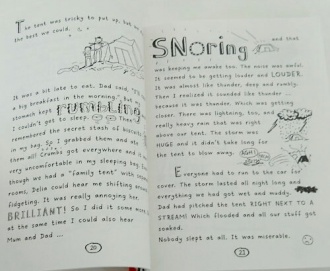 The tent was tricky to put up, but we
the tent we could.
It was a bit late to eat. Dad said,
a big breakfast in the morning." But my
stomach kept rumbling
I couldn't get to sleep. Then I
remembered the secret stash of biscuits
in my bag. So I grabbed them and ate
them all! Crumbs got everywhere and it was
very uncomfortable in my sleeping bag. Even
though we had a "family tent" with
rooms, Delia could hear me shifting around
fidgeting. It was really annoying her.
BRILLIANT! So I did it some more
at the same time I could also hear
Mum and Dad ...
20
SNoring and that
was keeping me awake too. The noise was awful.
It seemed to be getting louder and LOUDER.
It was almost like thunder, deep and rumbly.
Then I realised it sounded like thunder ...
because it was thunder. Which was getting
closer. There was lightning, too, and
really heavy rain that was right
above our tent. The storm was
HUGE and it didn't take long for
the tent to blow away.
Everyone had to run to the car for
cover. The storm lasted all night long and
everything we had got wet and muddy.
Dad had pitched the tent RIGHT NEXT TO A
STREAM! Which flooded and all our stuff got
soaked.
Nobody slept at all. It was miserable.
21